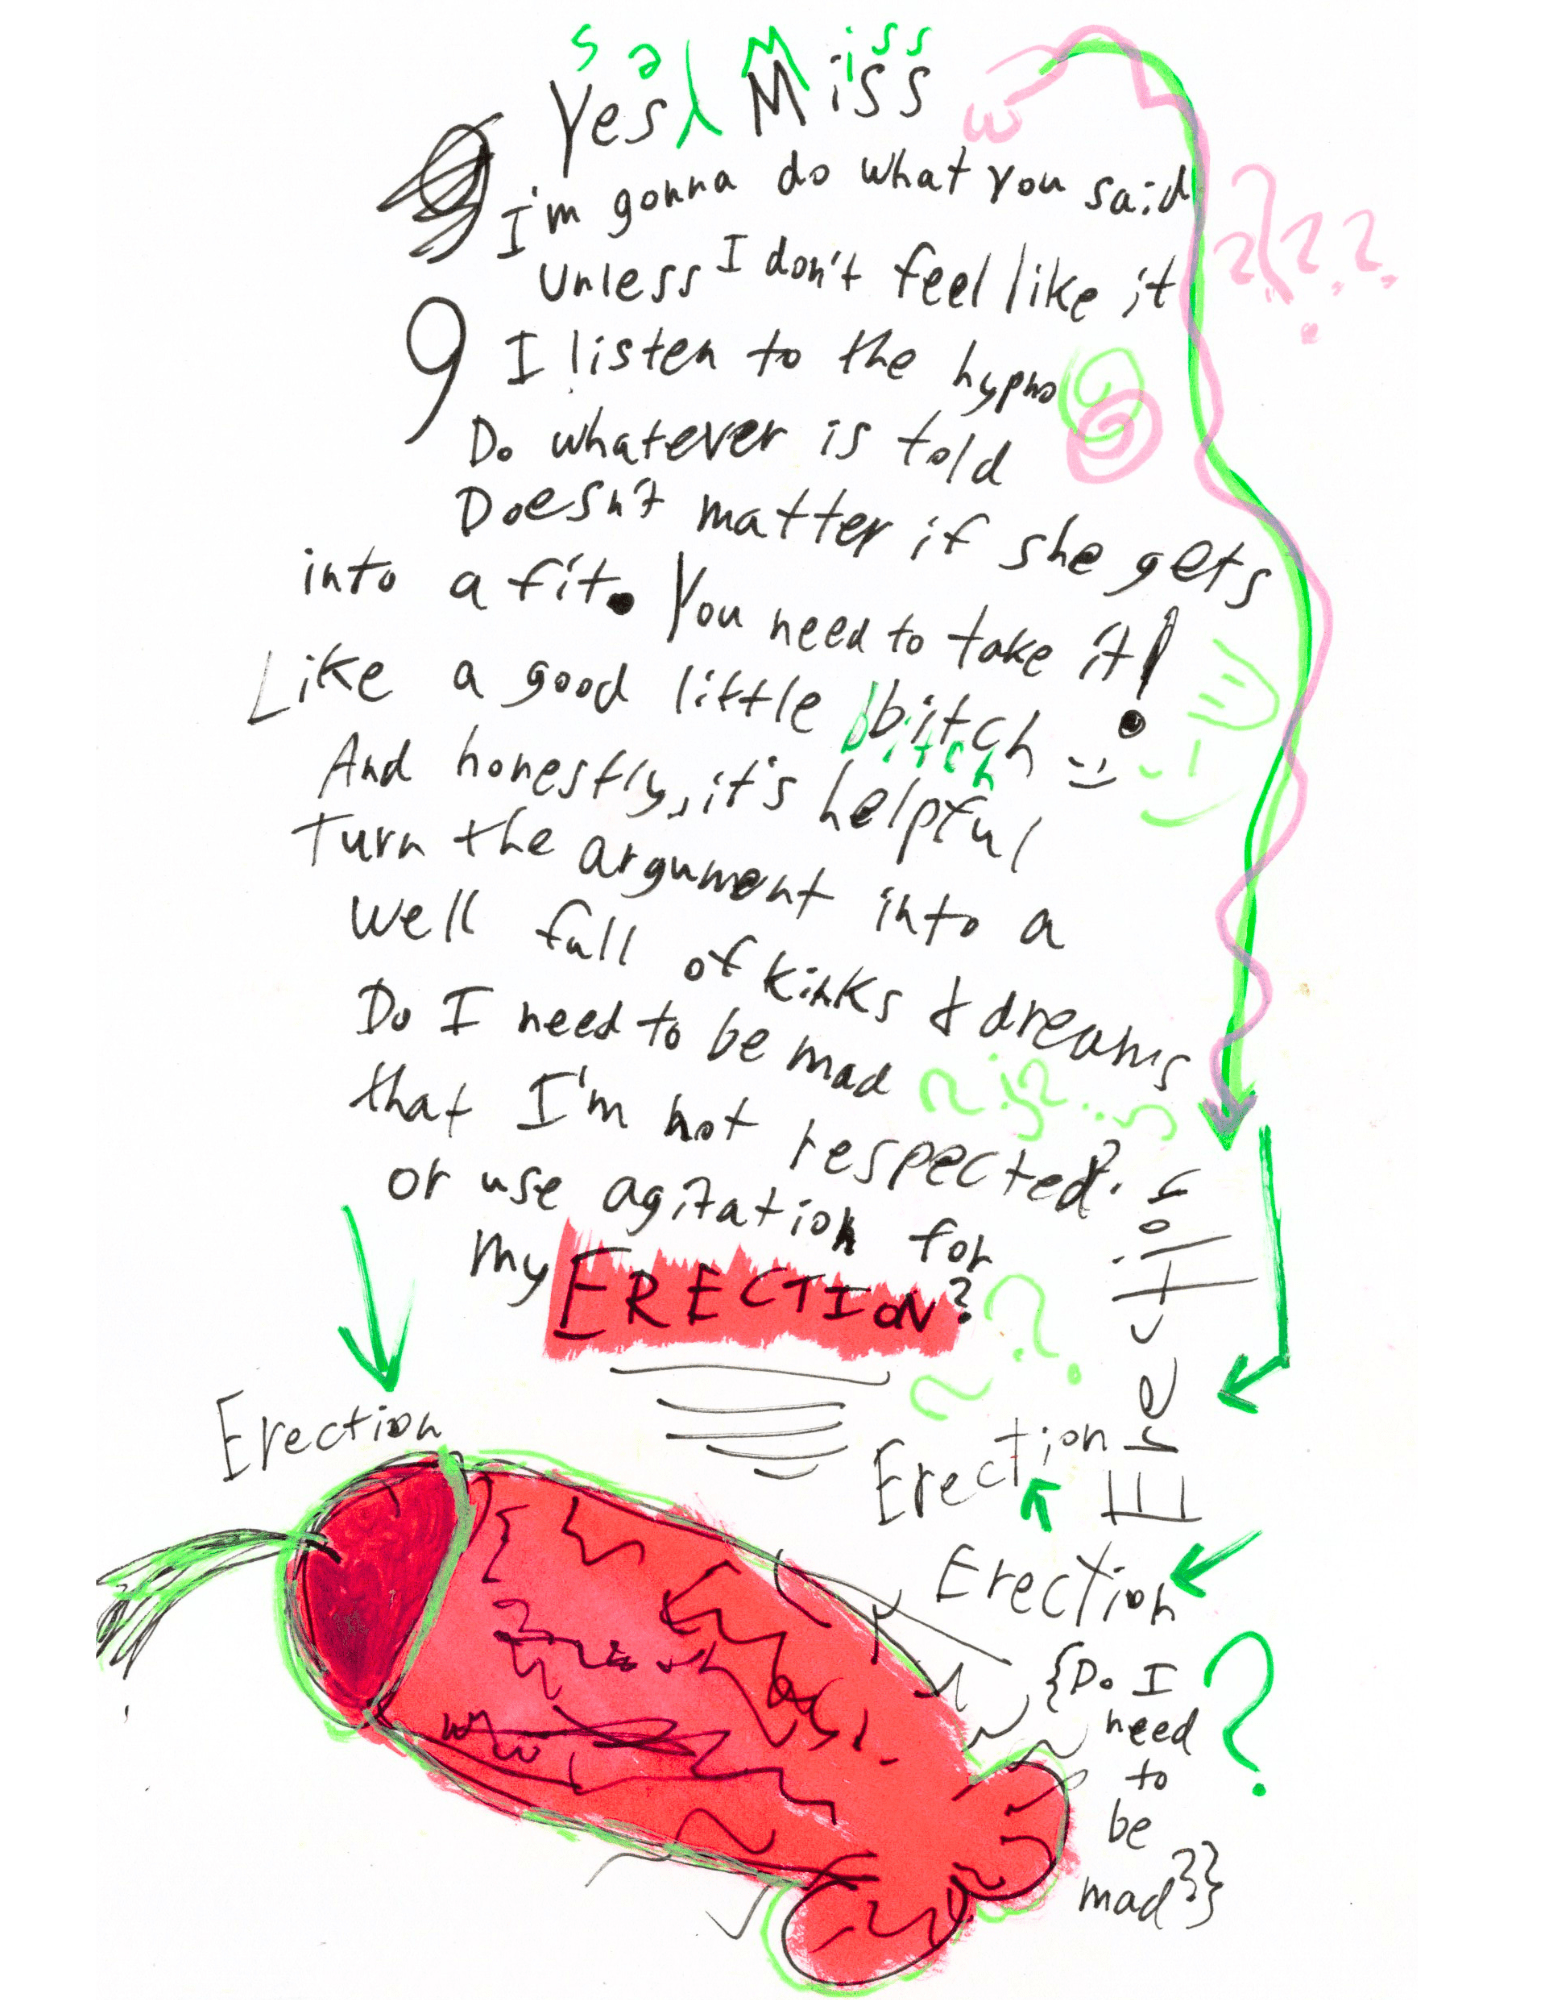 Yes Miss
Yes Miss
I'm gonna do what you said
Unless I don't feel like it
9 I listen to the hypno
Do whatever is told
Doesn't matter if she gets
into a fit. You need to take it!
Like a good little bitch :)
bitch
And honestly, it's helpful
Turn the argument into a
well full of kinks & dreams
Do I need to be mad
that I'm not respected?
or use agitation for
my ERECTION?
Erection
Erection
Erection
Erection
{Do I
need
to
be
mad?}}